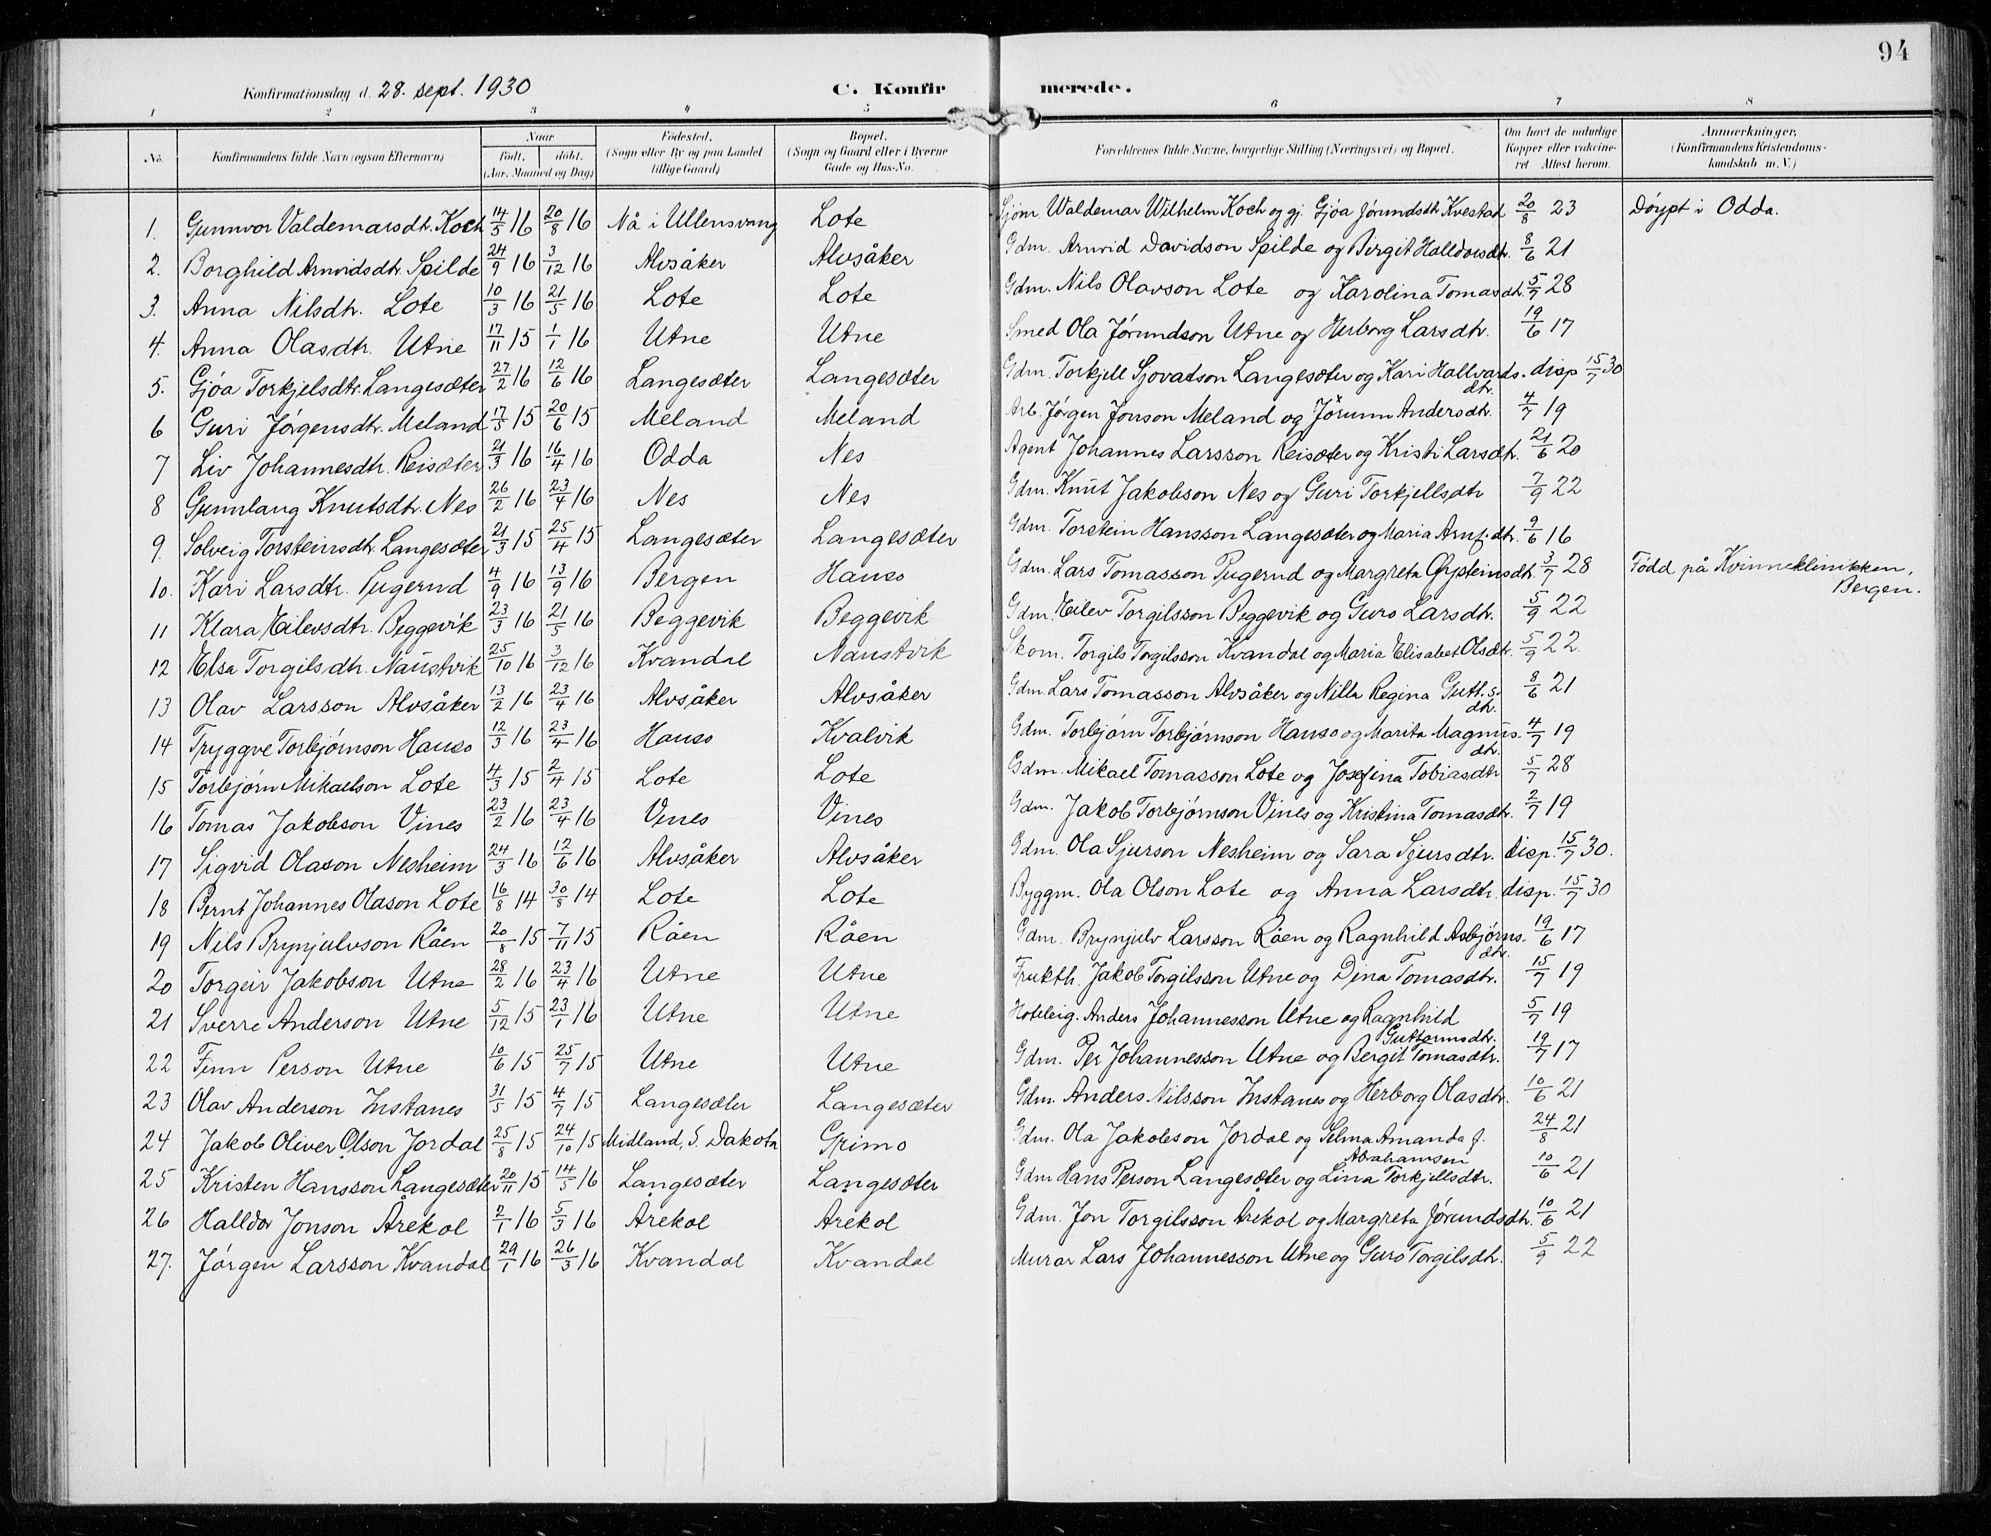 94
Konfirmationsdag d. 28. sept. 1930 C. Konfirmerede.
1 2 3 4 5 6 7 8
No. Konfirmandens fulde Navn (ogsaa Efternavn) Naar født, døbt. (Aar, Maaned og Dag) Fødested. (Sogn eller By og paa Landet tillige Gaard) Bopæl. (Sogn og Gaard eller i Byerne Gade og Hus-No. Forældrenes fulde Navne, borgerlige Stilling (Næringsvei) og Bopæl. Om havt de naturlige Kopper eller vakcineret Attest herom. Anmærkninger, (Konfirmandens Kristendomskundskab m. V.)
1. Gunnvor Valdemarsdtr. Koch 14/5 16 20/8 16 Nå i Ullensvang Lote Sjøm. Waldemar Wilhelm Koch og gj. Gjøa Jørundsdtr Kvestad 20/8 23 Døypt i Odda.
2. Borghild Arnvidsdtr. Spilde 24/9 16 3/12 16 Alvsåker Alvsåker Gdm. Arnvid Davidson Spilde og Birgit Halldorsdtr. 8/6 21
3. Anna Nilsdtr. Lote 10/3 16 21/5 16 Lote Lote Gdm. Nils Olavson Lote og Karolina Tomasdtr. 5/7 28
4. Anna Olasdtr. Utne 17/11 15 1/1 16 Utne Utne Smed Ola Jørundson Utne og Herborg Larsdtr. 19/6 17
5. Gjøa Torkjelsdtr. Langesæter 27/2 16 12/6 16 Langesæter Langesæter Gdm. Torkjell Sjovatson Langesæter og Kari Hallvardsdtr. disp 15/7 30
6 Guri Jørgensdtr. Meland 17/5 15 20/6 15 Meland Meland Arb. Jørgen Jonson Meland og Jørunn Andersdtr. 4/7 19
7 Liv Johannesdtr. Reisæter 21/3 16 16/4 16 Odda Nes Agent Johannes Larsson Reisæter og Kristi Larsdtr. 21/6 20
8 Gunnlang Knutsdtr. Nes 26/2 16 23/4 16 Nes Nes Gdm. Knut Jakobson Nes og Guri Torkjellsdtr 7/9 22
9. Solveig Torsteinsdtr. Langesæter 21/3 15 25/4 15 Langesæter Langesæter Gdm. Torstein Hansson Langesæter og Maria Arnf.dtr. 9/6 16
10. Kari Larsdtr. Pugerud 4/9 16 13/9 16 Bergen Hauso Gdm. Lars Tomasson Pugerud og Margreta Øysteinsdtr. 3/7 28 Fødd på Kvinneklinikken, Bergen.
11 Klara Eilevsdtr. Beggevik 23/3 16 21/5 16 Beggevik Beggevik Gdm. Eilev Torgilsson Beggevik og Guro Larsdtr. 5/9 22
12 Elsa Torgilsdtr. Naustvik 25/10 16 3/12 16 Kvandal Naustvik Skom. Torgils Torgilsson Kvandal og Maria Elisabet Olsdtr. 5/9 22
13 Olav Larsson Alvsåker 13/2 16 23/4 16 Alvsåker Alvsåker Gdm. Lars Tomasson Alvsåker og Nilla Regina Gutt.s.dtr. 8/6 21
14 Tryggve Torbjørnson Hauso 12/3 16 23/4 16 Hauso Kvalvik Gdm. Torbjørn Torbjørnson Hauso og Marita Magnus.dtr. 4/7 19
15 Torbjørn Mikaelson Lote 4/3 15 2/4 15 Lote Lote Gdm. Mikael Tomasson Lote og Josefina Tobiasdtr 5/7 28
16 Tomas Jakobson Vines 23/2 16 23/4 16 Vines Vines Gdm. Jakob Torbjørnson Vines og Kristina Tomasdtr. 2/7 19
17 Sigvid Olason Nesheim 24/3 16 12/6 16 Alvsåker Alvsåker Gdm. Ola Sjurson Nesheim og Sara Sjursdtr. disp. 15/7 30.
18 Bernt Johannes Olason Lote 16/8 14 30/8 14 Lote Lote Byggm. Ola Olson Lote og Anna Larsdtr. disp. 15/7 30
19 Nils Brynjulvson Råen 20/8 15 7/11 15 Råen Råen Gdm. Brynjulv Larsson Råen og Ragnhild Asbjørns.dtr. 19/6 17
20 Torgeir Jakobson Utne 28/2 16 23/4 16 Utne Utne Frukth. Jakob Torgilsson Utne og Dina Tomasdtr. 15/7 19
21 Sverre Anderson Utne 5/12 15 23/1 16 Utne Utne Hoteleig. Anders Johannesson Utne og Ragnhild Guttormsdtr. 5/7 19
22 Finn Person Utne 10/6 15 25/7 15 Utne Utne Gdm. Per Johannesson Utne og Bergit Tomasdtr. 19/7 17
23 Olav Anderson Instanes 31/5 15 4/7 15 Langesæter Langesæter Gdm. Anders Nilsson Instanes og Herborg Olasdtr. 10/6 21
24 Jakob Oliver Olson Jordal 25/8 15 24/10 15 Midland, S. Dakota Grimo Gdm. Ola Jakobson Jordal og Selma Amanda f. Abrahamsen 24/8 21
25 Kristen Hansson Langesæter 20/11 15 14/5 16 Langesæter Langesæter Gdm Hans Person Langesæter og Lina Torkjellsdtr. 10/6 21
26 Halldor Jonson Årekol 2/1 16 5/3 16 Årekol Årekol Gdm. Jon Torgilsson Årekol og Margreta Jørundsdtr. 10/6 21
27. Jørgen Larsson Kvandal 29/1 16 26/3 16 Kvandal Kvandal Murar Lars Johannesson Utne og Guro Torgilsdtr. 5/9 22